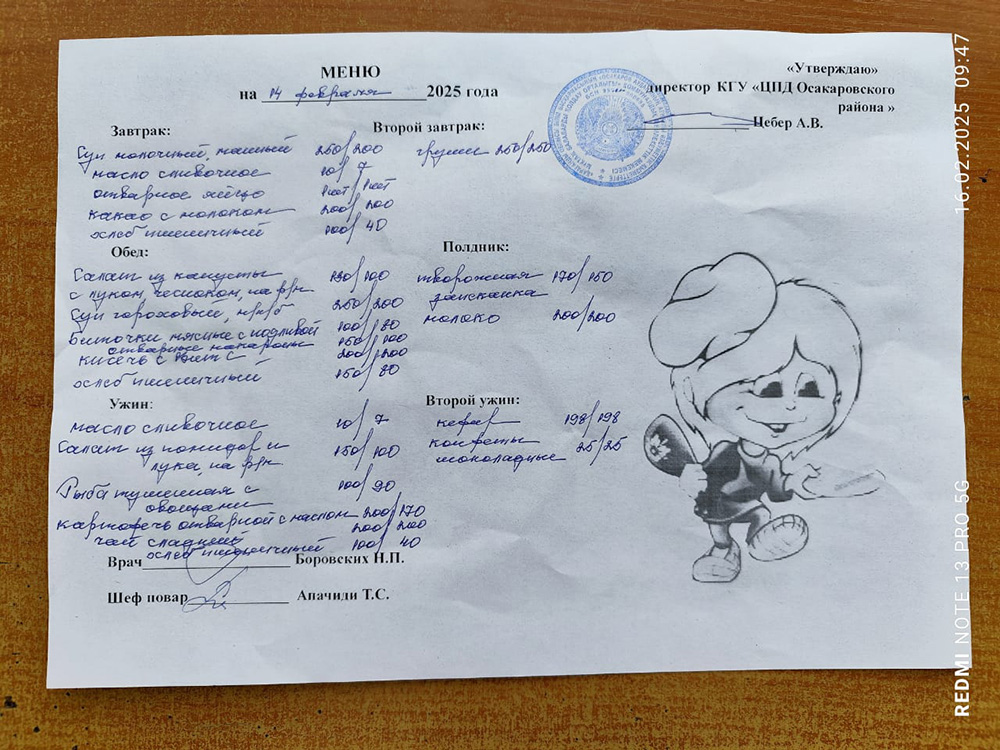 МЕНЮ
на 14 февраля 2025 года
«Утверждаю»
директор КГУ «ЦПД Осакаровского
района »
Цебер А.В.
Завтрак:
Суп молочный, манный 250/200
масло сливочное 10/7
отварное яйцо 1шт/1шт
какао с молоком 200/200
хлеб пшеничный 100/40
Второй завтрак:
груши 250/250
Обед:
Салат из капусты 130/100
с луком, чесноком, на р/м
Суп гороховый, н/к/б 250/200
биточки мясные с подливой 100/80
отварные макароны 150/100
кисель с Вит С 200/200
хлеб пшеничный 150/80
Полдник:
творожная 170/150
запеканка
молоко 200/200
Ужин:
масло сливочное 10/7
Салат из помидор и 150/100
лука, на р/м
Рыба тушенная с 100/90
овощами
картофель отварной с маслом 200/170
чай сладкий 200/200
хлеб пшеничный 100/40
Второй ужин:
кефир 198/198
конфеты 25/25
шоколадные
Врач Боровских Н.П.
Шеф повар Апачиди Т.С.
16.02.2025 09:47
REDMI NOTE 13 PRO 5G